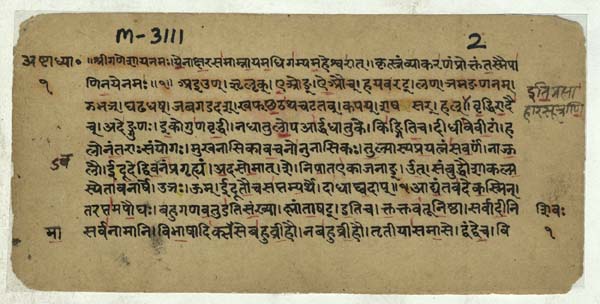 M-3111
2
अष्टाध्या॰ ॥श्रीगणेशायनमः॥येनाक्षरसमाम्नायमधिगम्यमहेश्वरात्॥कृत्स्नंव्याकरणंप्रोक्तंतस्मैपा
१ णिनयेनमः॥१॥अइउण्।ऋऌक्।एओङ्।ऐऔच्।हयवरट्।लण्।ञमङणनम्।
झभञ्।घढधष्।जबगडदश्।खफछठथचटतव्।कपय्।शषसर्।हल्॥वृद्धिरादै
च्।अदेङ्गुणः।इकोगुणवृद्धी।नधातुलोपआर्द्धधातुके।क्ङितिच।दीधीवेवीटां।ह
लोनंतराःसंयोगः।मुखनासिकावचनोनुनासिकः।तुल्यास्यप्रयत्नंसवर्णं।नाज्झ
लौ।ईदूदेद्द्विवचनंप्रगृह्यं।अदसोमात्।शे।निपातएकाजनाङ्।ओत्।संबुद्धौशाकल्य
स्येतावनार्षे।उञः।ऊम्।ईदूतौचसप्तम्यर्थे।दाधाघ्वदाप्॥१आद्यंतवदेकस्मिन्।
तरप्तमपौघः।बहुगणवतुडतिसंख्या।ष्णांताषट्।डतिच।क्तक्तवतूनिष्ठा।सर्वादीनि शिवः
सर्वनामानि।विभाषादिक्समासेबहुव्रीहौ।नबहुव्रीहौ।तृतीयासमासे।द्वंद्वेच।वि १